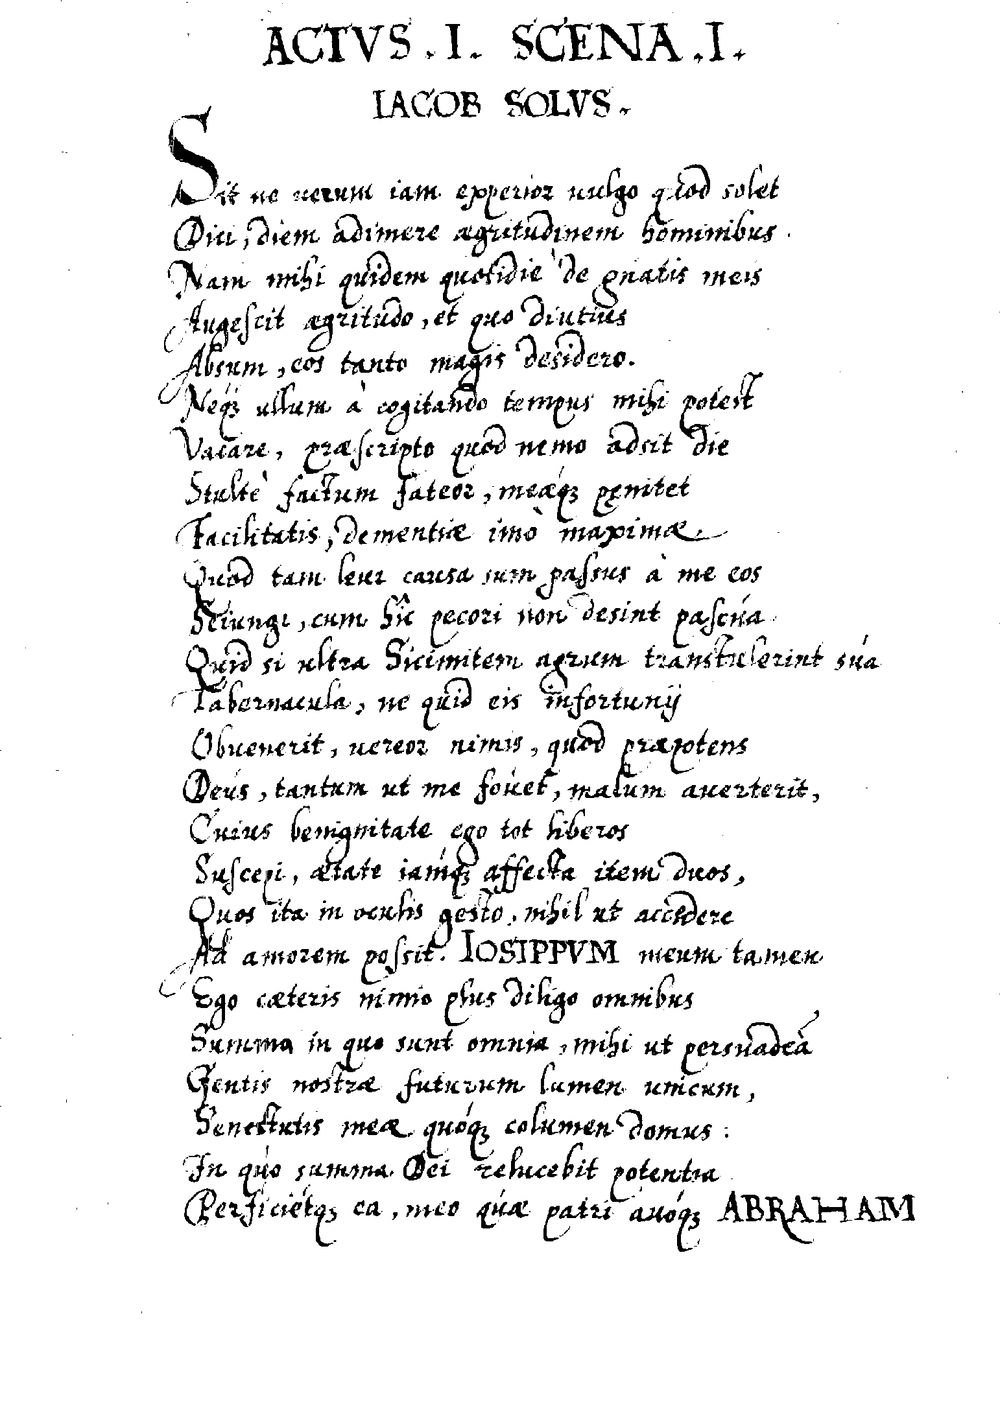 ACTVS . I . SCENA . I .
IACOB SOLVS .
Sit ne uerum iam experior uulgo quod solet
Dici, diem adimere ægritudinem hominibus.
Nam mihi quidem quotidie de gnatis meis
Augescit ægritudo, et quo diutius
Absum, eos tanto magis desidero.
Neq; ullum à cogitando tempus mihi potest
Vacare, præscripto quod nemo adsit die
Stultè factum fateor, meæq́; pęnitet
Facilitatis, dementiæ imò maximæ
Quod tam leui causa sum passus à me eos
Seiungi, cum hîc pecori non desint pascua.
Quid si ultra Sicimitem agrum transtulerint sua
Tabernacula, ne quid eis infortunij
Obuenerit, uereor nimis, quod præpotens
Deus, tantum ut me fouet, malum auerterit,
Cuius benignitate ego tot liberos
Suscepi, ætate iamq́; affecta item duos,
Quos ita in oculis gesto, nihil ut accedere
Ad amorem possit. IOSIPPVM meum tamen
Ego cæteris nimio plus diligo omnibus
Summa in quo sunt omnia, mihi ut persuadeā
Gentis nostræ futurum lumen unicum,
Senectutis meæ quóq; columen domus:
In quo summa Dei relucebit potentia
Perficiétq; ea, meo quæ patri auóq; ABRAHAM